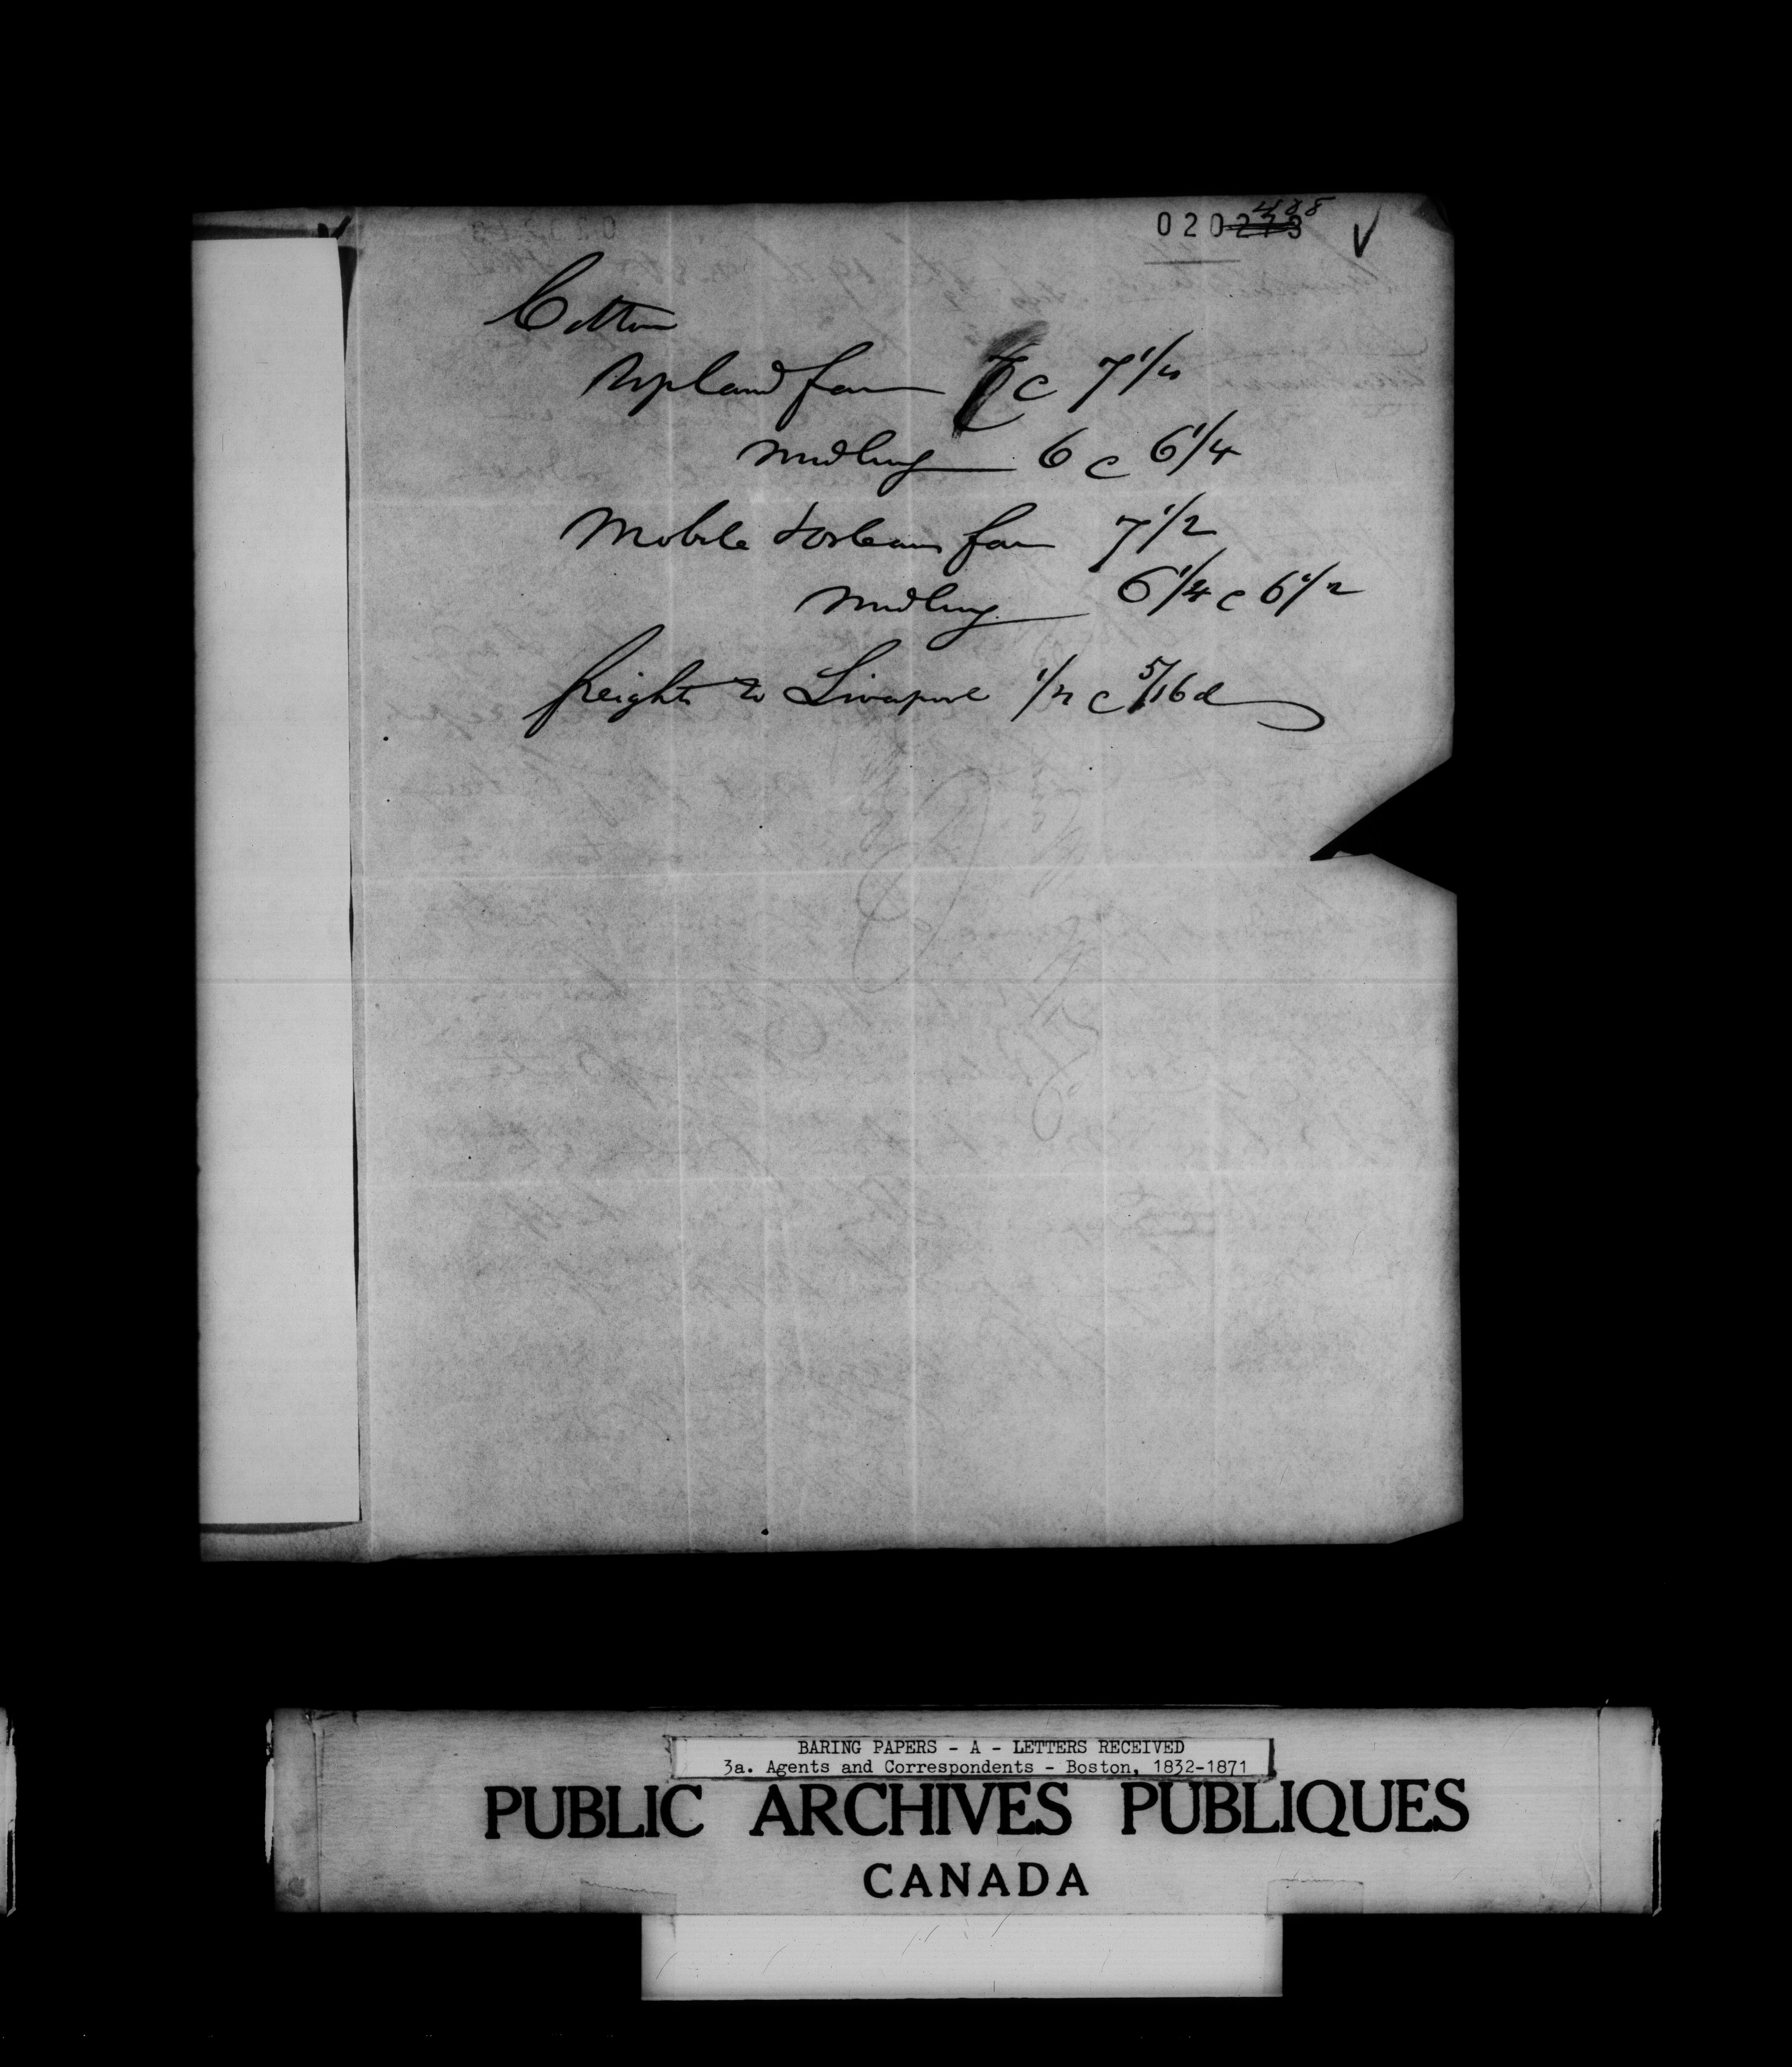 020273 488 V
Cotton
Upland fair 7 c 7 1/4
midling 6 c 6 1/4
Mobile & Orleans fair 7 1/2
midling 6 1/4 c 6 1/2
freight to Liverpool c 5/16 d
BARING PAPERS - A - LETTERS RECEIVED
3a. Agents and Correspondents - Boston, 1832-1871
PUBLIC ARCHIVES PUBLIQUES
CANADA